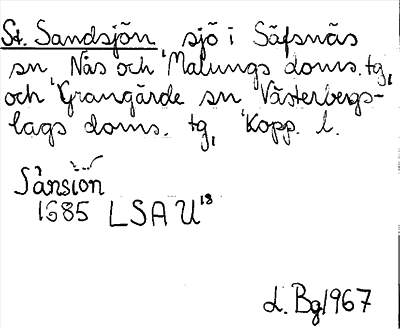 St. Sandsjön sjö i Säfsnäs
sn, Nås och Malungs doms. tg,
och Grangärde sn Västerbergs-
lags doms. tg, Kopp. l.
Sånsiön
1685 LSA U 18
L. Bg 1967